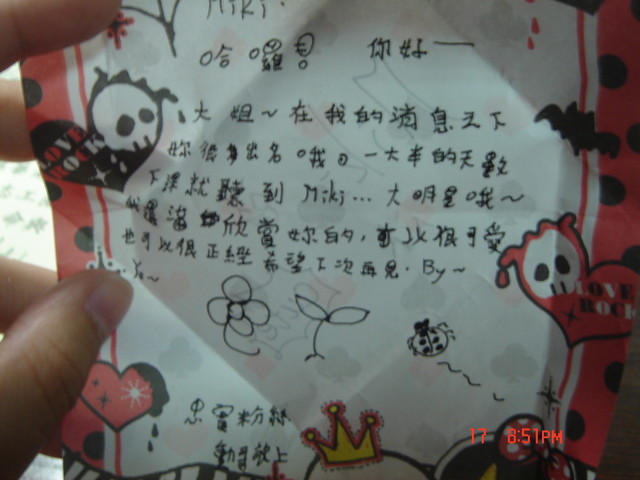 Miki:
哈囉! 你好一
大姐~在我的消息之下
妳很多出名哦!一大半的天數
下課就聽到 Miki... 大明星哦~
我還滿欣賞妳的,可以很可愛
也可以很正經希望下次再見. By~
Yo~
LOVE ROCK
LOVE ROCK
忠實粉絲
上
17 8:51PM